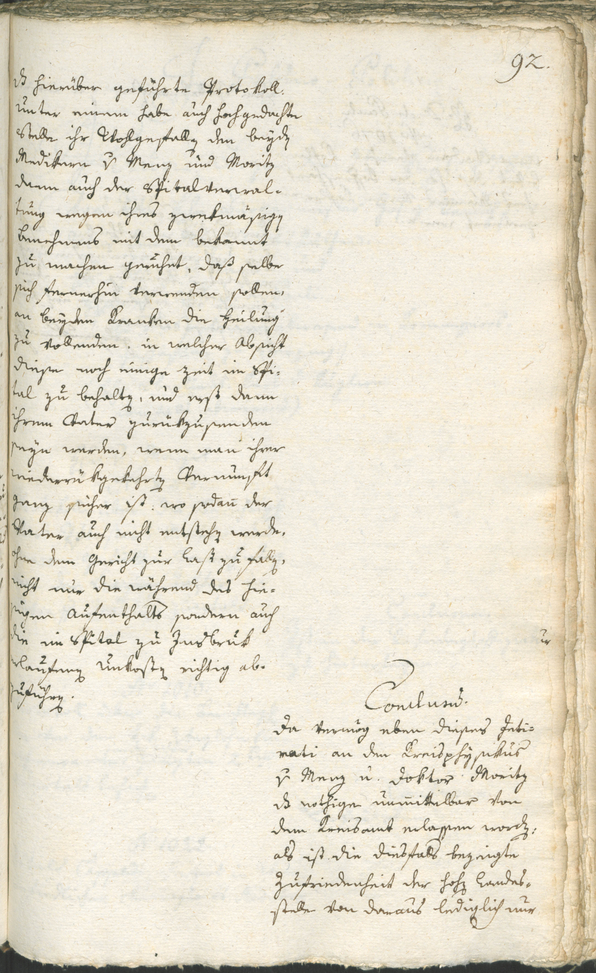 92.
ds hierüber geführte Protokoll.
unter einem habe auch hochgedachte
Stelle ihr Wohlgefalln den beydn
Medikern v Menz und Moritz
dann auch der Spitalverwal-
tung wegen ihres zwekmäsign
Benehmens mit dem bekannt
zu machen geruhet, daß selbe
sich fernerhin verwenden sollen,
an beyden Kranken die Heilung
zu vollenden. in welcher Absicht
diese noch einige Zeit im Spi-
tal zu behaltn, und erst dann
ihrem Vater zurückzusenden
seyn werden, wenn man ihrer
wiederrükgekehrtn Vernunft
ganz sicher ist. wo sodann der
Vater auch nicht entstehn werde,
ohne dem Gericht zur Last zu falln,
nicht nur die während des hie-
sigen Aufenthalts sondern auch
die im Spital zu Insbruk
erlaufenen Unkostn richtig ab-
zuführn.
Conclusum.
Da vermög eben dieses Inti-
mati an den Kreisphysikus
v Menz u. Doktor Moritz
ds nöthige unmittelbar von
dem Kreisamt erlassen wordn,
als ist die diesfals bezeigte
Zufriedenheit der hohn Landes-
stelle von daraus lediglich nur